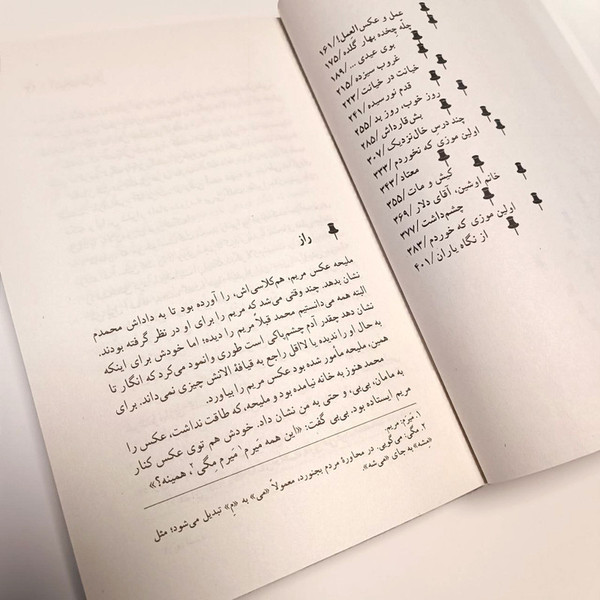 عمل و عکس‌العمل!/۱۶۱
چلّه چِخده بهار گَلده/۱۷۵
بوی عیدی .../۱۸۹
غروب سیزده/۲۱۵
خیانت در خیانت/۲۲۳
قدم نورسیده/۲۴۱
روز خوب، روز بد/۲۵۵
بش‌قارداش/۲۸۵
چند درسِ خال‌نزدیک/۳۰۷
اولین موزی که نخوردم/۳۳۳
معتاد/۳۴۳
کیش و مات/۳۵۵
خانم اوشین، آقای دلار/۳۶۹
چشم‌داشت/۳۷۷
اولین موزی که خوردم/۳۸۳
از نگاه باران/۴۰۱
راز
ملیحه عکس مریم، هم‌کلاسی‌اش، را آورده بود تا به داداش محمدم
نشان بدهد. چند وقتی می‌شد که مریم را برای او در نظر گرفته بودند.
البته همه می‌دانستیم محمد قبلاً مریم را دیده؛ اما خودش برای اینکه
نشان دهد چقدر آدم چشم‌پاکی است طوری وانمود می‌کرد که انگار تا
به حال او را ندیده یا لااقل راجع به قیافهٔ الانش چیزی نمی‌داند. برای
همین، ملیحه مأمور شده بود عکس مریم را بیاورد.
محمد هنوز به خانه نیامده بود و ملیحه، که طاقت نداشت، عکس را
به مامان، بی‌بی، و حتی به من نشان داد. خودش هم توی عکس کنار
مریم ایستاده بود. بی‌بی گفت: «این همه مَیرم۱ مَیرم مِگی۲، همینه؟»
۱. مَیرم: مریم.
۲. مِگی: می‌گویی. در محاورهٔ مردم بجنورد، معمولاً «می» به «مِ» تبدیل می‌شود؛ مثل
«مِشه» به جای «می‌شه».